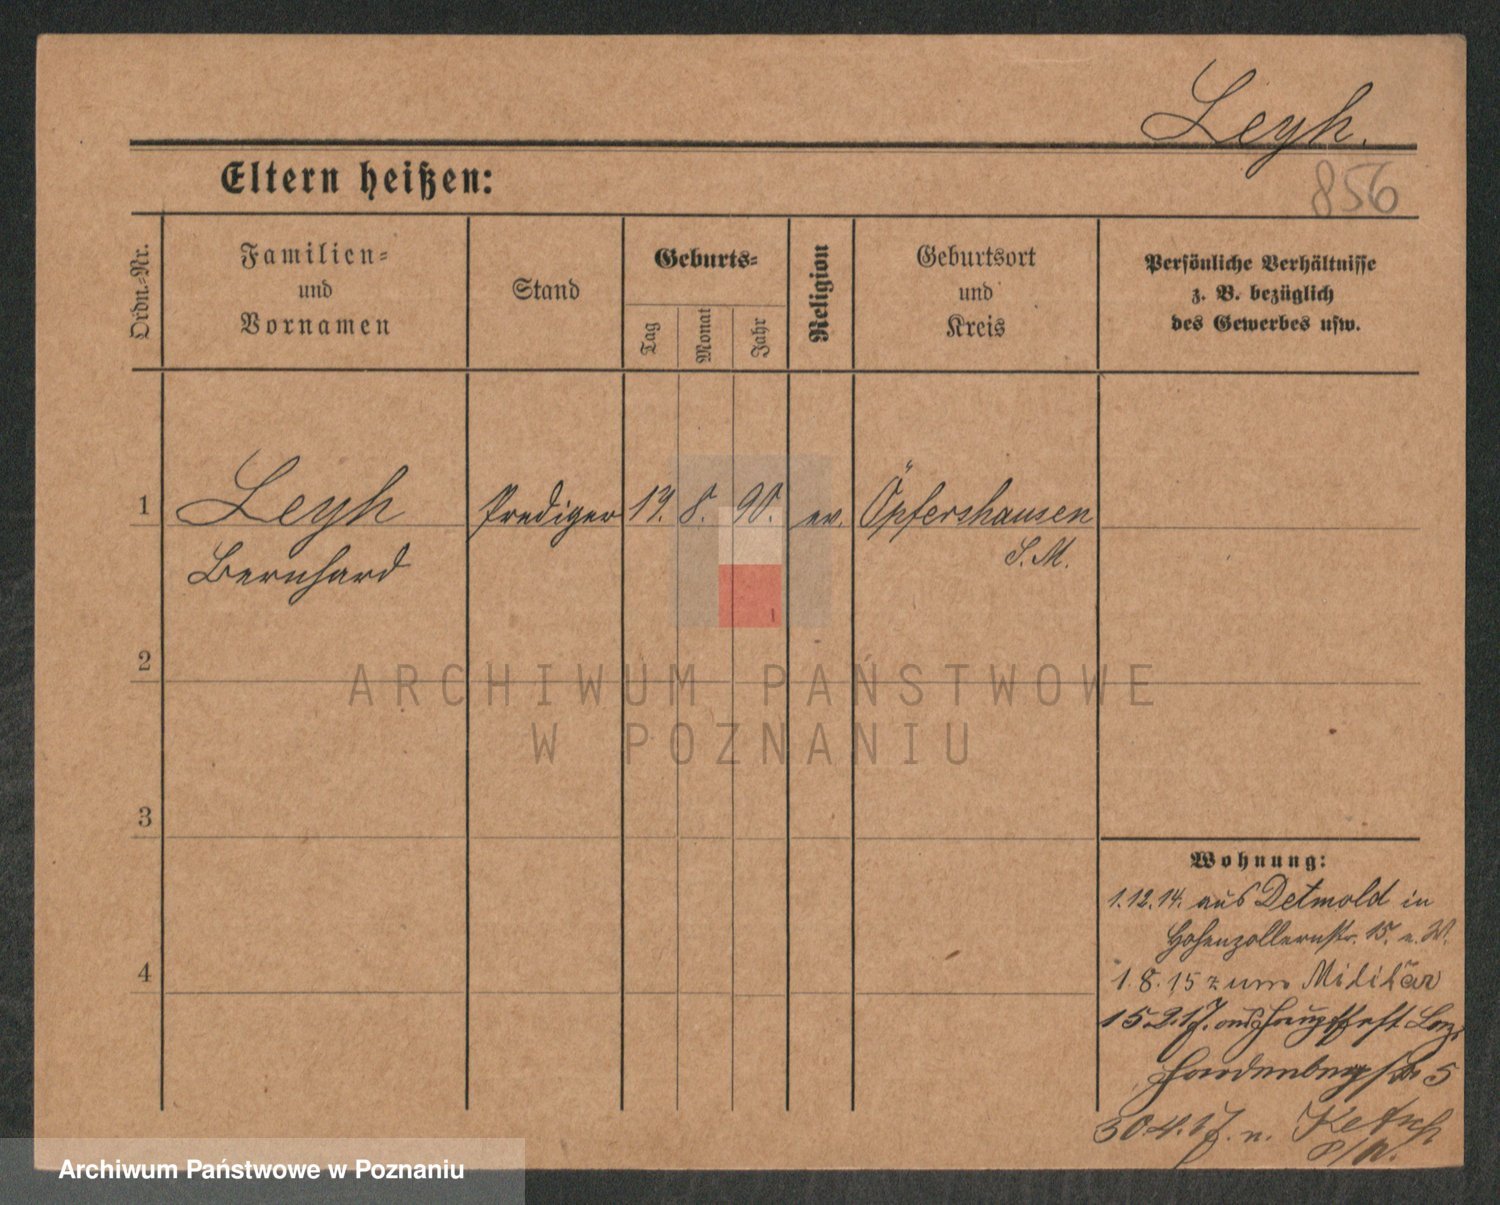 Leyh.
856
Eltern heißen:
Ordn.-Nr.
Familien-
und
Vornamen
Stand
Geburts-
Tag
Monat
Jahr
Religion
Geburtsort
und
Kreis
Persönliche Verhältnisse
z. B. bezüglich
des Gewerbes usw.
1 Leyh Prediger 17. 8. 90. ev. Öpfershausen
Bernhard S. M.
2
ARCHIWUM PAŃSTWOWE
W POZNANIU
3
Wohnung:
1.12.14. aus Detmold in
Hohenzollernstr. 15. u. W.
4
1.8.15 zum Militär
15.2.17. aus
Hardenbergstr 5
30.4.17. n.
Archiwum Państwowe w Poznaniu